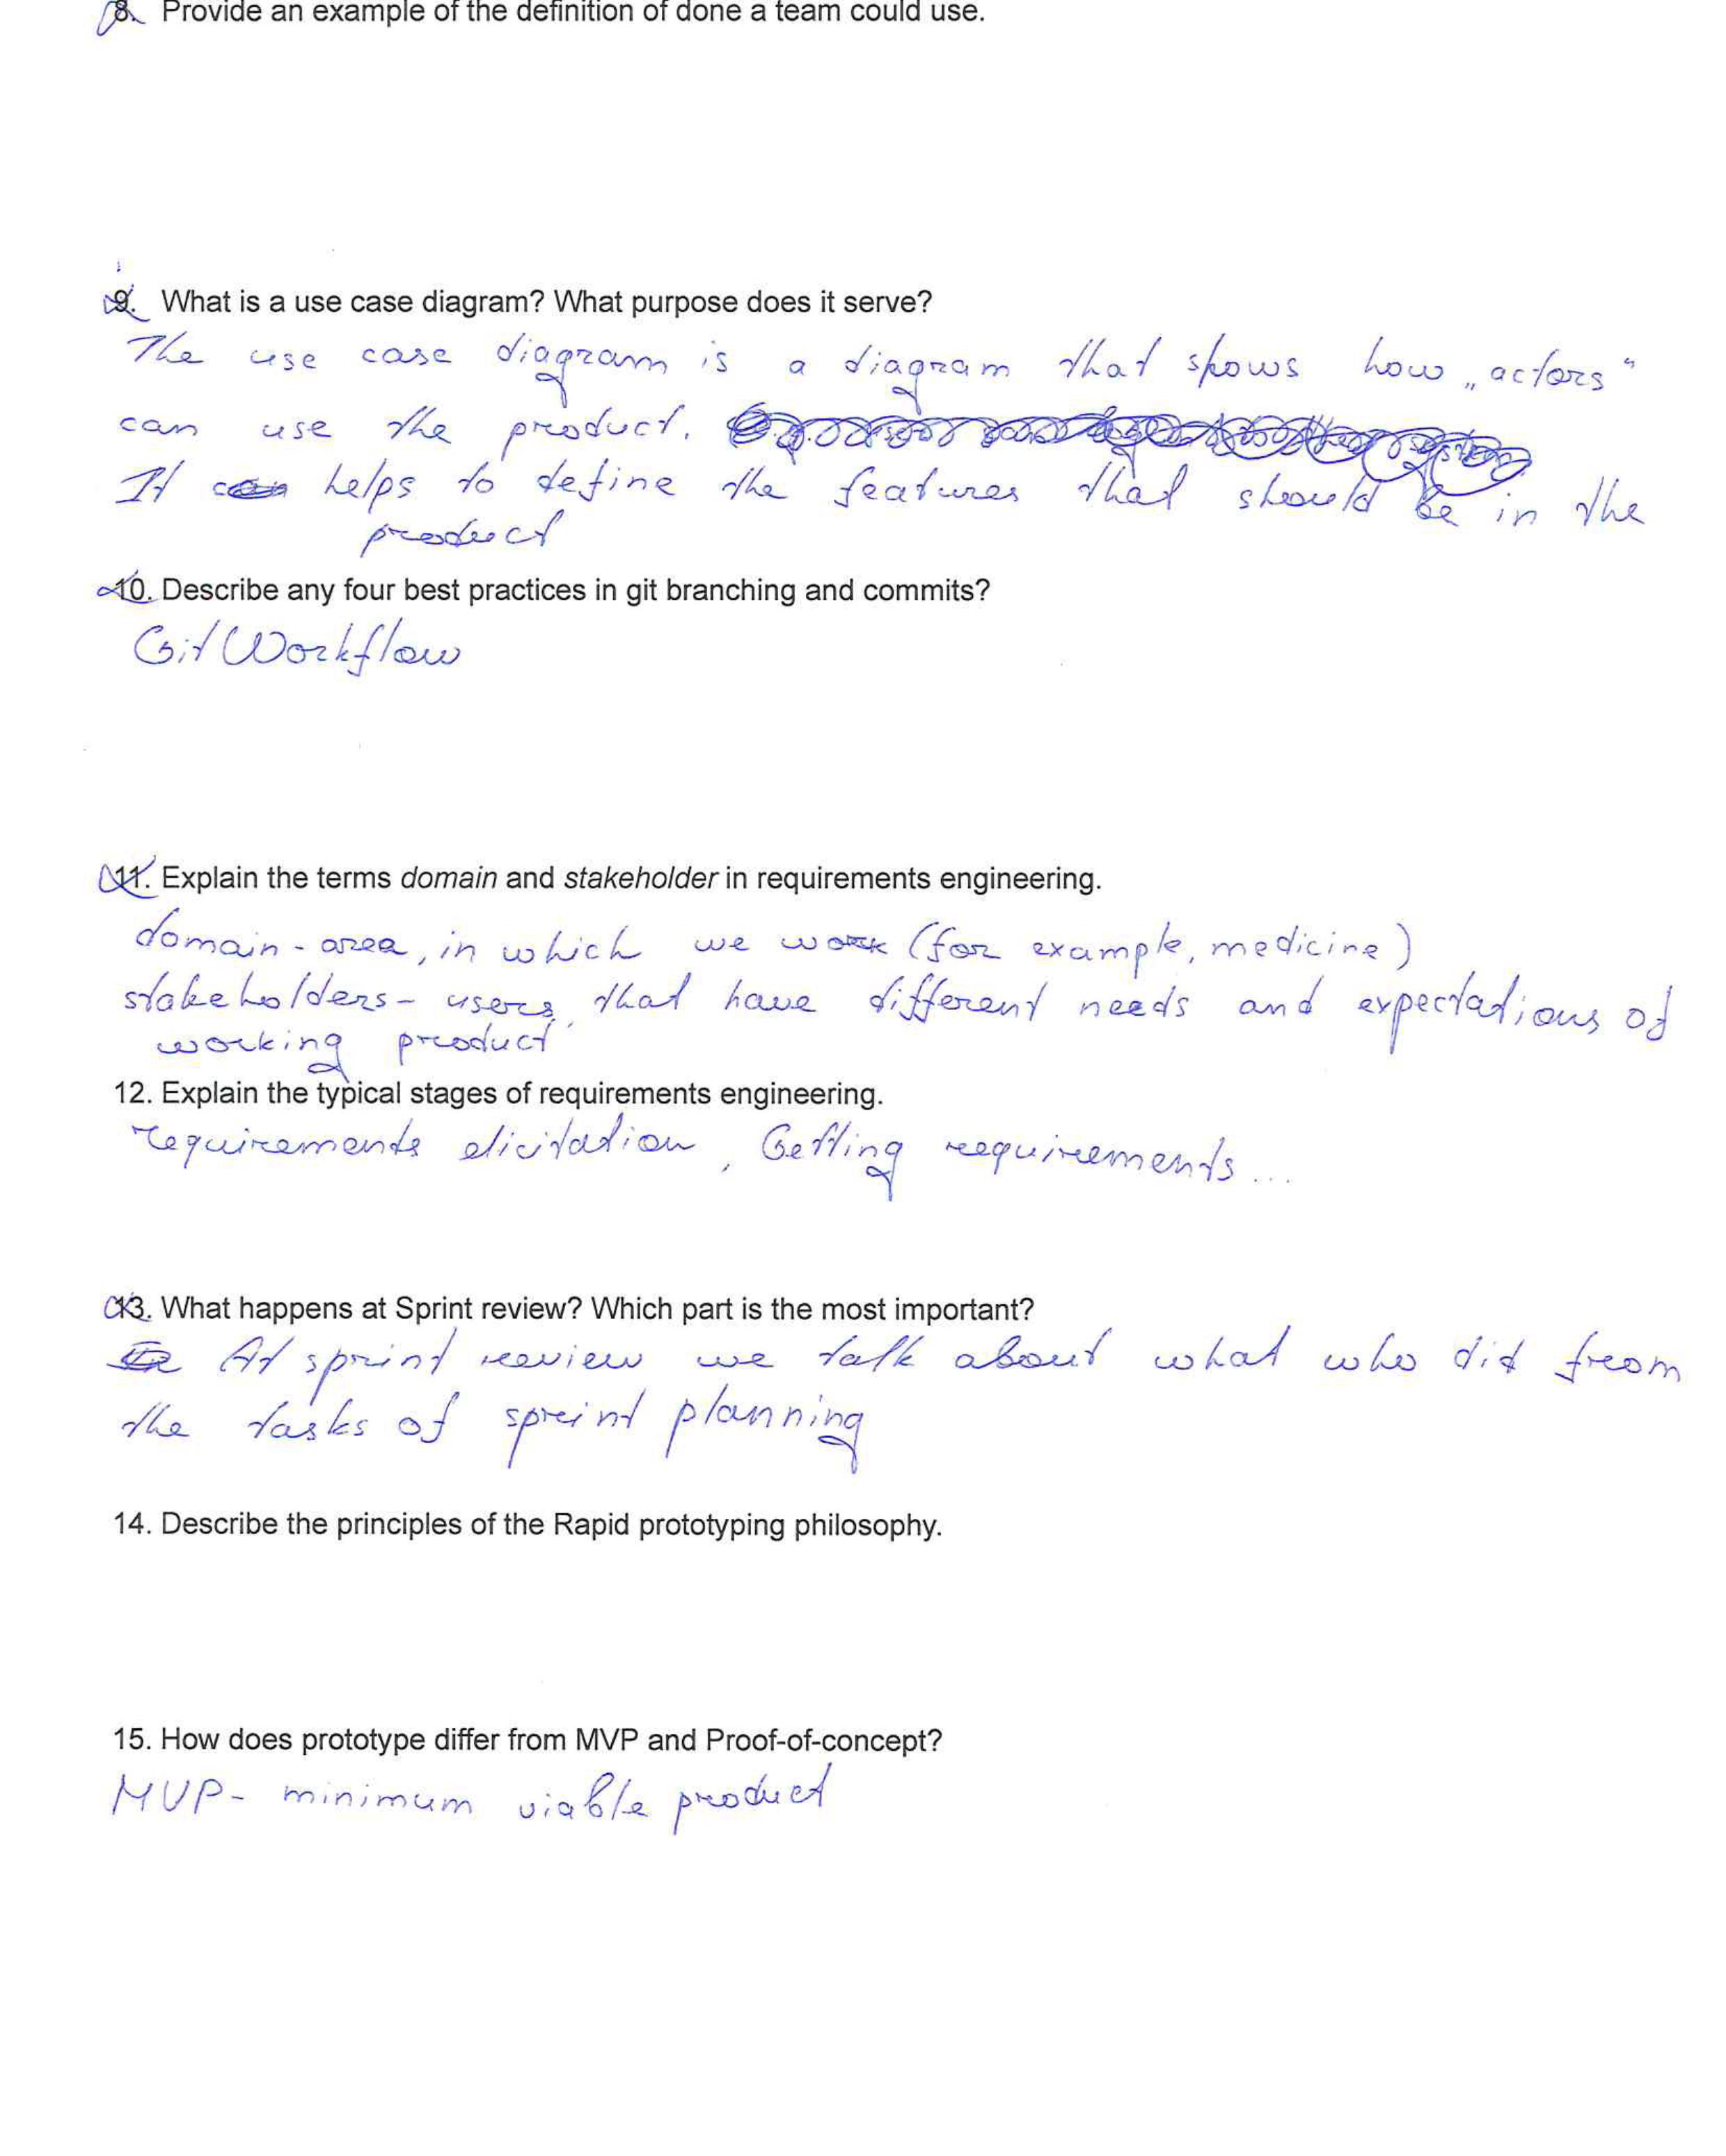 8. Provide an example of the definition of done a team could use.
9. What is a use case diagram? What purpose does it serve?
The use case diagram is a diagram that shows how „actors“
can use the product.
It helps to define the features that should be in the
product
10. Describe any four best practices in git branching and commits?
Git Workflow
11. Explain the terms domain and stakeholder in requirements engineering.
domain - area, in which we work (for example, medicine)
stakeholders - users, that have different needs and expectations of
working product
12. Explain the typical stages of requirements engineering.
requirements elicitation, Getting requirements...
13. What happens at Sprint review? Which part is the most important?
At sprint review we talk about what who did from
the tasks of sprint planning
14. Describe the principles of the Rapid prototyping philosophy.
15. How does prototype differ from MVP and Proof-of-concept?
MVP - minimum viable product